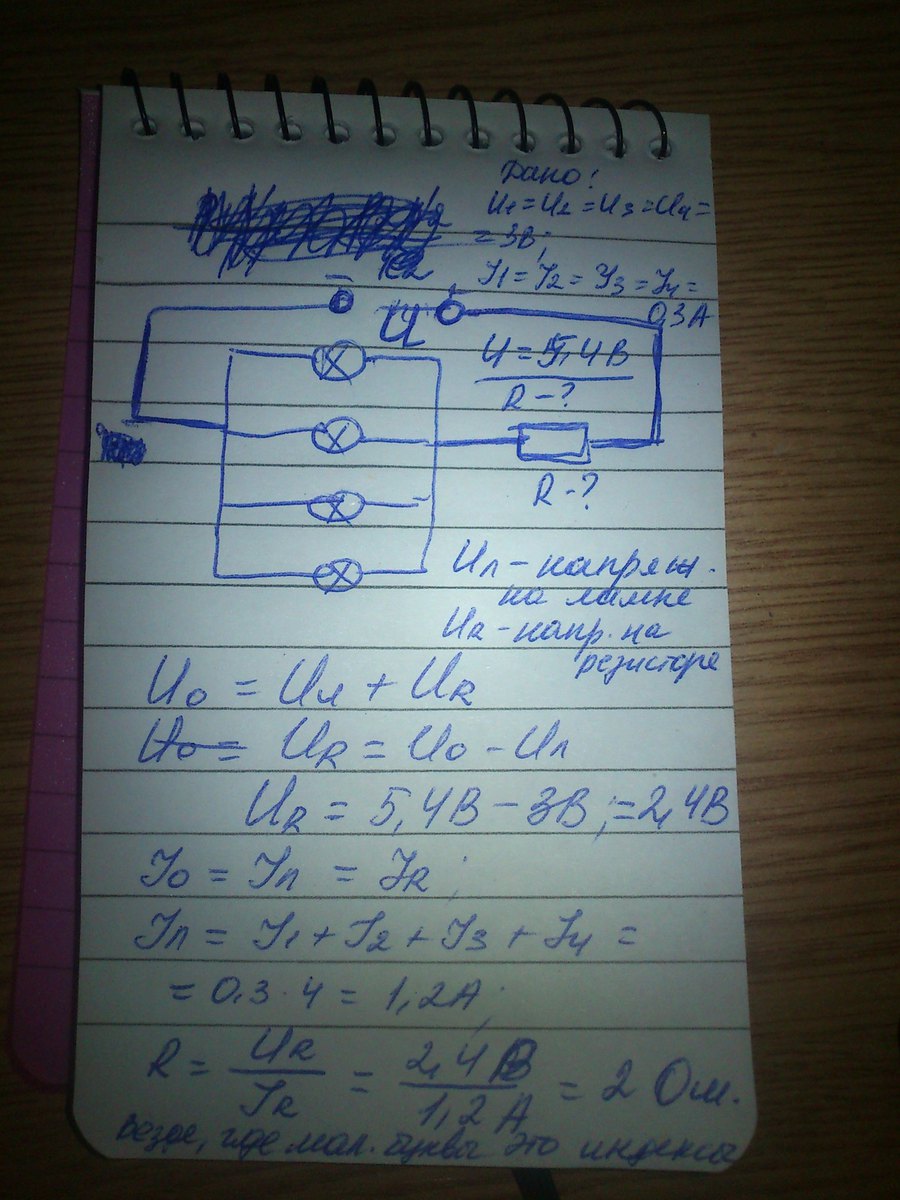 Дано!
U1 = U2 = U3 = U4 =
= 3В;
J1 = J2 = J3 = J4 =
0,3А
- U
U = 5,4В
R - ?
R - ?
Uл - напряж.
на лампе
UR - напр. на
резисторе
U0 = Uл + UR
U0 = UR = U0 - Uл
UR = 5,4В - 3В; = 2,4В
J0 = Jл = JR;
Jл = J1 + J2 + J3 + J4 =
= 0,3 · 4 = 1,2А;
R = UR / JR = 2,4 В / 1,2 А = 2 Ом.
Везде, где мал. буквы это индексы